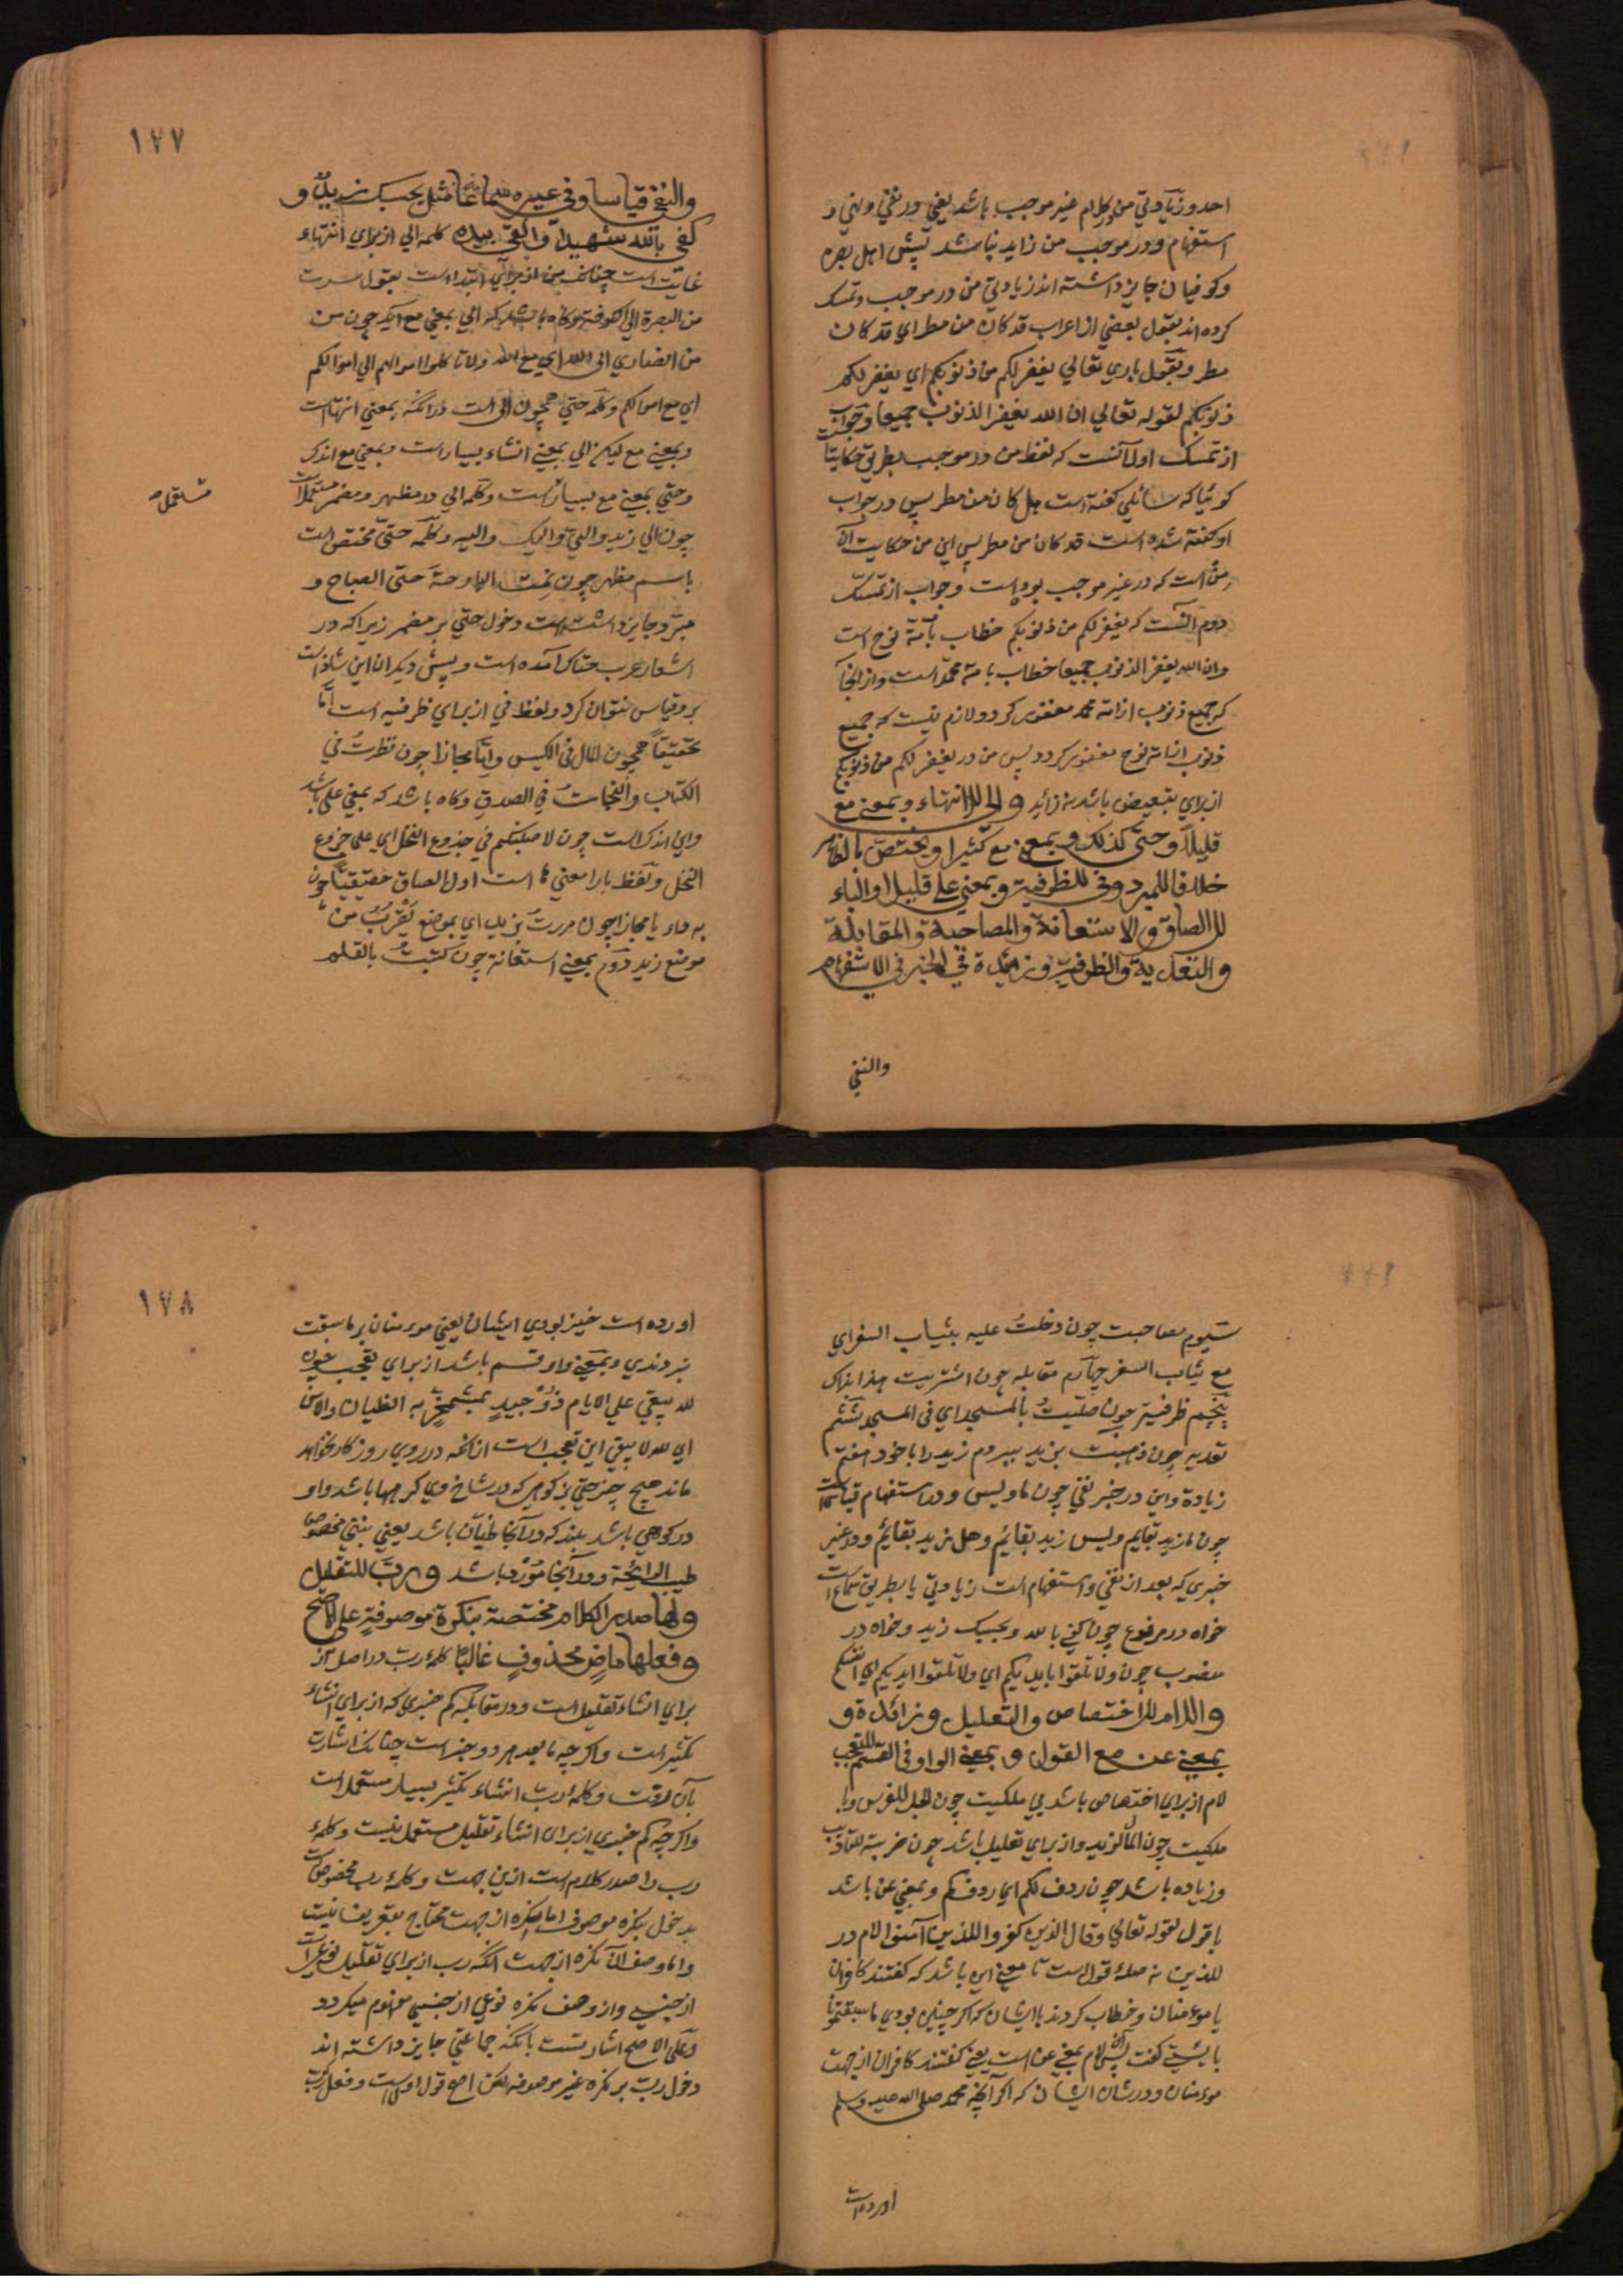 احد و زیادتی من در کلام غیر موجب باشد یعنی در نفی و نهی و
استفهام و در موجب من زاید نباشد پیش اهل بصره
و کوفیان جایز داشته اند زیادتی من در موجب و تمسک
کرده اند بقول بعضی از اعراب قد کان من مطر ای قد کان
مطر و بقول باری تعالی یغفر لکم من ذنوبکم ای یغفر لکم
ذنوبکم لقوله تعالی ان الله یغفر الذنوب جمیعا و جواب
از تمسک اول آنست که لفظ من در موجب بطریق حکایت
گوئیا که سائلی گفته است هل کان من مطر پس در جواب
او گفته شده است قد کان من مطر پس این من حکایت آن
من است که در غیر موجب بوده است و جواب از تمسک
دوم آنست که یغفر لکم من ذنوبکم خطاب بامة نوح است
وان الله یغفر الذنوب جمیعا خطاب بامة محمد است و از آنجا
که جمیع ذنوب از امة محمد مغفور گردد لازم نیست که جمیع
ذنوب از امة نوح مغفور گردد پس من در یغفر لکم من ذنوبکم
از برای تبعیض باشد نه زائد والی للانتهاء و بمعنی مع
قلیلا وحتی کذلک و بمعنی مع کثیرا ویختص بالظاهر
خلافا للمبرد وفی للظرفیة وبمعنی علی قلیلا والباء
للالصاق والاستعانة والمصاحبة والمقابلة
والتعدیة والظرفیة وزائدة فی الخبر فی الاستفهام
والنفی
۱۷۷
والنفی قیاسا وفی غیره سماعا مثل بحسبک زید و
کفی بالله شهیدا والقی بیده کلمه الی از برای انتهاء
غایت است چنانکه من از برای ابتدا است بقول سرت
من البصرة الی الکوفة و گاه باشد که الی بمعنی مع آید چون من
من انصاری الی الله ای مع الله ولا تاکلوا اموالهم الی اموالکم
ای مع اموالکم و کلمه حتی همچون الی است در آنکه بمعنی انتها است
و بمعنی مع لیکن الی بمعنی انتهاء بسیار است و بمعنی مع اندک
و حتی بمعنی مع بسیار است و کلمه الی در مظهر و مضمر مستعمل است
مستعمل
چون الی زید والی والیک والیه و کلمه حتی مختص است
باسم مظهر چون نمت البارحة حتی الصباح و
مبرد جایز داشته است دخول حتی بر مضمر زیرا که در
اشعار عرب حتاک آمده است و پیش دیگران این شاذ است
بر و قیاس نتوان کرد و لفظ فی از برای ظرفیه است اما
تحقیقا همچون المال فی الکیس و اما مجازا چون نظرت فی
الکتاب والنجاة فی الصدق و گاه باشد که بمعنی علی باشد
و این اندک است چون لاصلبنکم فی جذوع النخل ای علی جذوع
النخل و لفظ با را معنی ها است اول الصاق حقیقتا چون
به داء یا مجازا چون مررت بزید ای بموضع یقرب من
موضع زید دوم بمعنی استعانة چون کتبت بالقلم
سیوم مصاحبت چون دخلت علیه بثیاب السفر ای
مع ثیاب السفر چهارم مقابله چون اشتریت هذا بذاک
پنجم ظرفیة چون صلیت بالمسجد ای فی المسجد ششم
تعدیه چون ذهبت بزید ببردم زید را با خود هفتم
زیادة و این در خبر نفی چون ما و لیس و در استفهام قیاس است
چون ما زید بقایم ولیس زید بقائم وهل زید بقائم و در غیر
خبری که بعد از نفی و استفهام است زیادتی با بطریق سماع است
خواه در مرفوع چون کفی بالله و بحسبک زید و خواه در
منصوب چون ولا تلقوا بایدیکم ای ولا تلقوا ایدیکم ای انفسکم
واللام للاختصاص والتعلیل وزائدة و
بمعنی عن مع القول وبمعنی الواو فی القسم للتعجب
لام از برای اختصاص باشد بی ملکیت چون الجل للفرس و با
ملکیت چون المال لزید و از برای تعلیل باشد چون ضربته للتادیب
و زیاده باشد چون ردف لکم ای ردفکم و بمعنی عن باشد
با قول لقوله تعالی وقال الذین کفروا للذین آمنوا لام در
للذین نه صلهٔ قول است تا معنی این باشد که گفتند کافران
با مومنان و خطاب کردند با ایشان که اگر چنین بودی ما سبقتمونا
بایستی گفت پس این لام بمعنی عن است یعنی گفتند کافران از جهت
مومنان و در شان ایشان که اگر آنچه محمد صلی الله علیه وسلم
آورده است
۱۷۸
آورده است خیر بودی ایشان یعنی مومنان بر ما سبقت
نبردندی و بمعنی واو قسم باشد از برای تعجب چون
لله یبقی علی الایام ذو حید بمشمخر به الظیان والآس
ای لله لا یبقی این تعجب است از آنکه در روی روزگار نخواهد
ماند هیچ چیز حتی بز کوهی که در شاخ وی گرهها باشد و او
در کوهی باشد بلند که در آنجا ظیان باشد یعنی نبتی مخصوص
طیب الرائحة و در آنجا مورد باشد ورب للتقلیل
ولها صدر الکلام مختصة بنکرة موصوفة علی الاصح
وفعلها ماض محذوف غالبا کلمهٔ رب در اصل از
برای انشاء تقلیل است و در مقابلهٔ کم خبری که از برای انشاء
تکثیر است و اگر چه ما بعد هر دو خبر است چنانکه اشارت
بآن رفت و کلمهٔ رب انشاء تکثیر بسیار مستعمل است
و اگر چه کم خبری از برای انشاء تقلیل مستعمل نیست و کلمهٔ
رب را صدر کلام است ازین جهت و کلمهٔ رب مخصوص است
بدخول نکره موصوف اما نکره از جهت محتاج بتعریف نیست
و اما وصف آن نکره از جهت آنکه رب از برای تقلیل نوعی است
از جنسی و از وصف نکره نوعی از جنسی مفهوم میگردد
و علی الاصح اشارتست بآنکه جماعتی جایز داشته اند
دخول رب بر نکره غیر موصوفه لکن اصح قول اول است و فعل رب